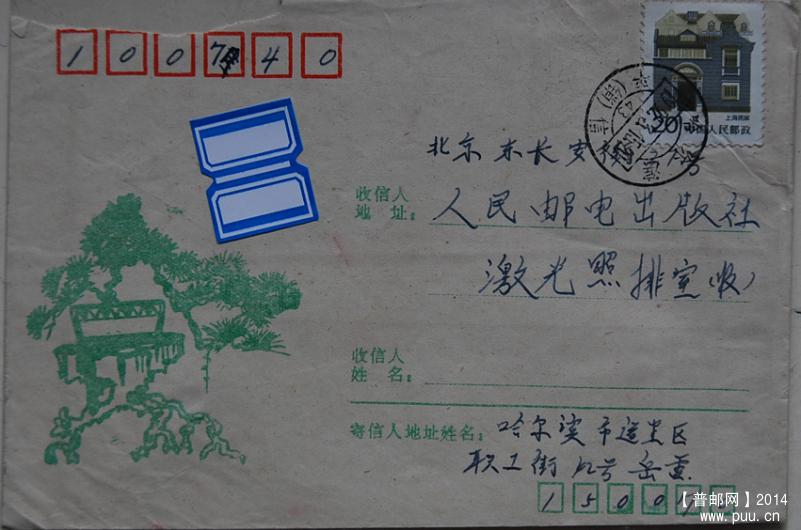 100740
上海民居
20
中国人民邮政
北京东长安街
收信人
地址：
人民邮电出版社
激光照排室（收）
收信人
姓名：
寄信人地址姓名：
哈尔滨市道里区
职工街
15001
【普邮网】2014
www.puu.cn